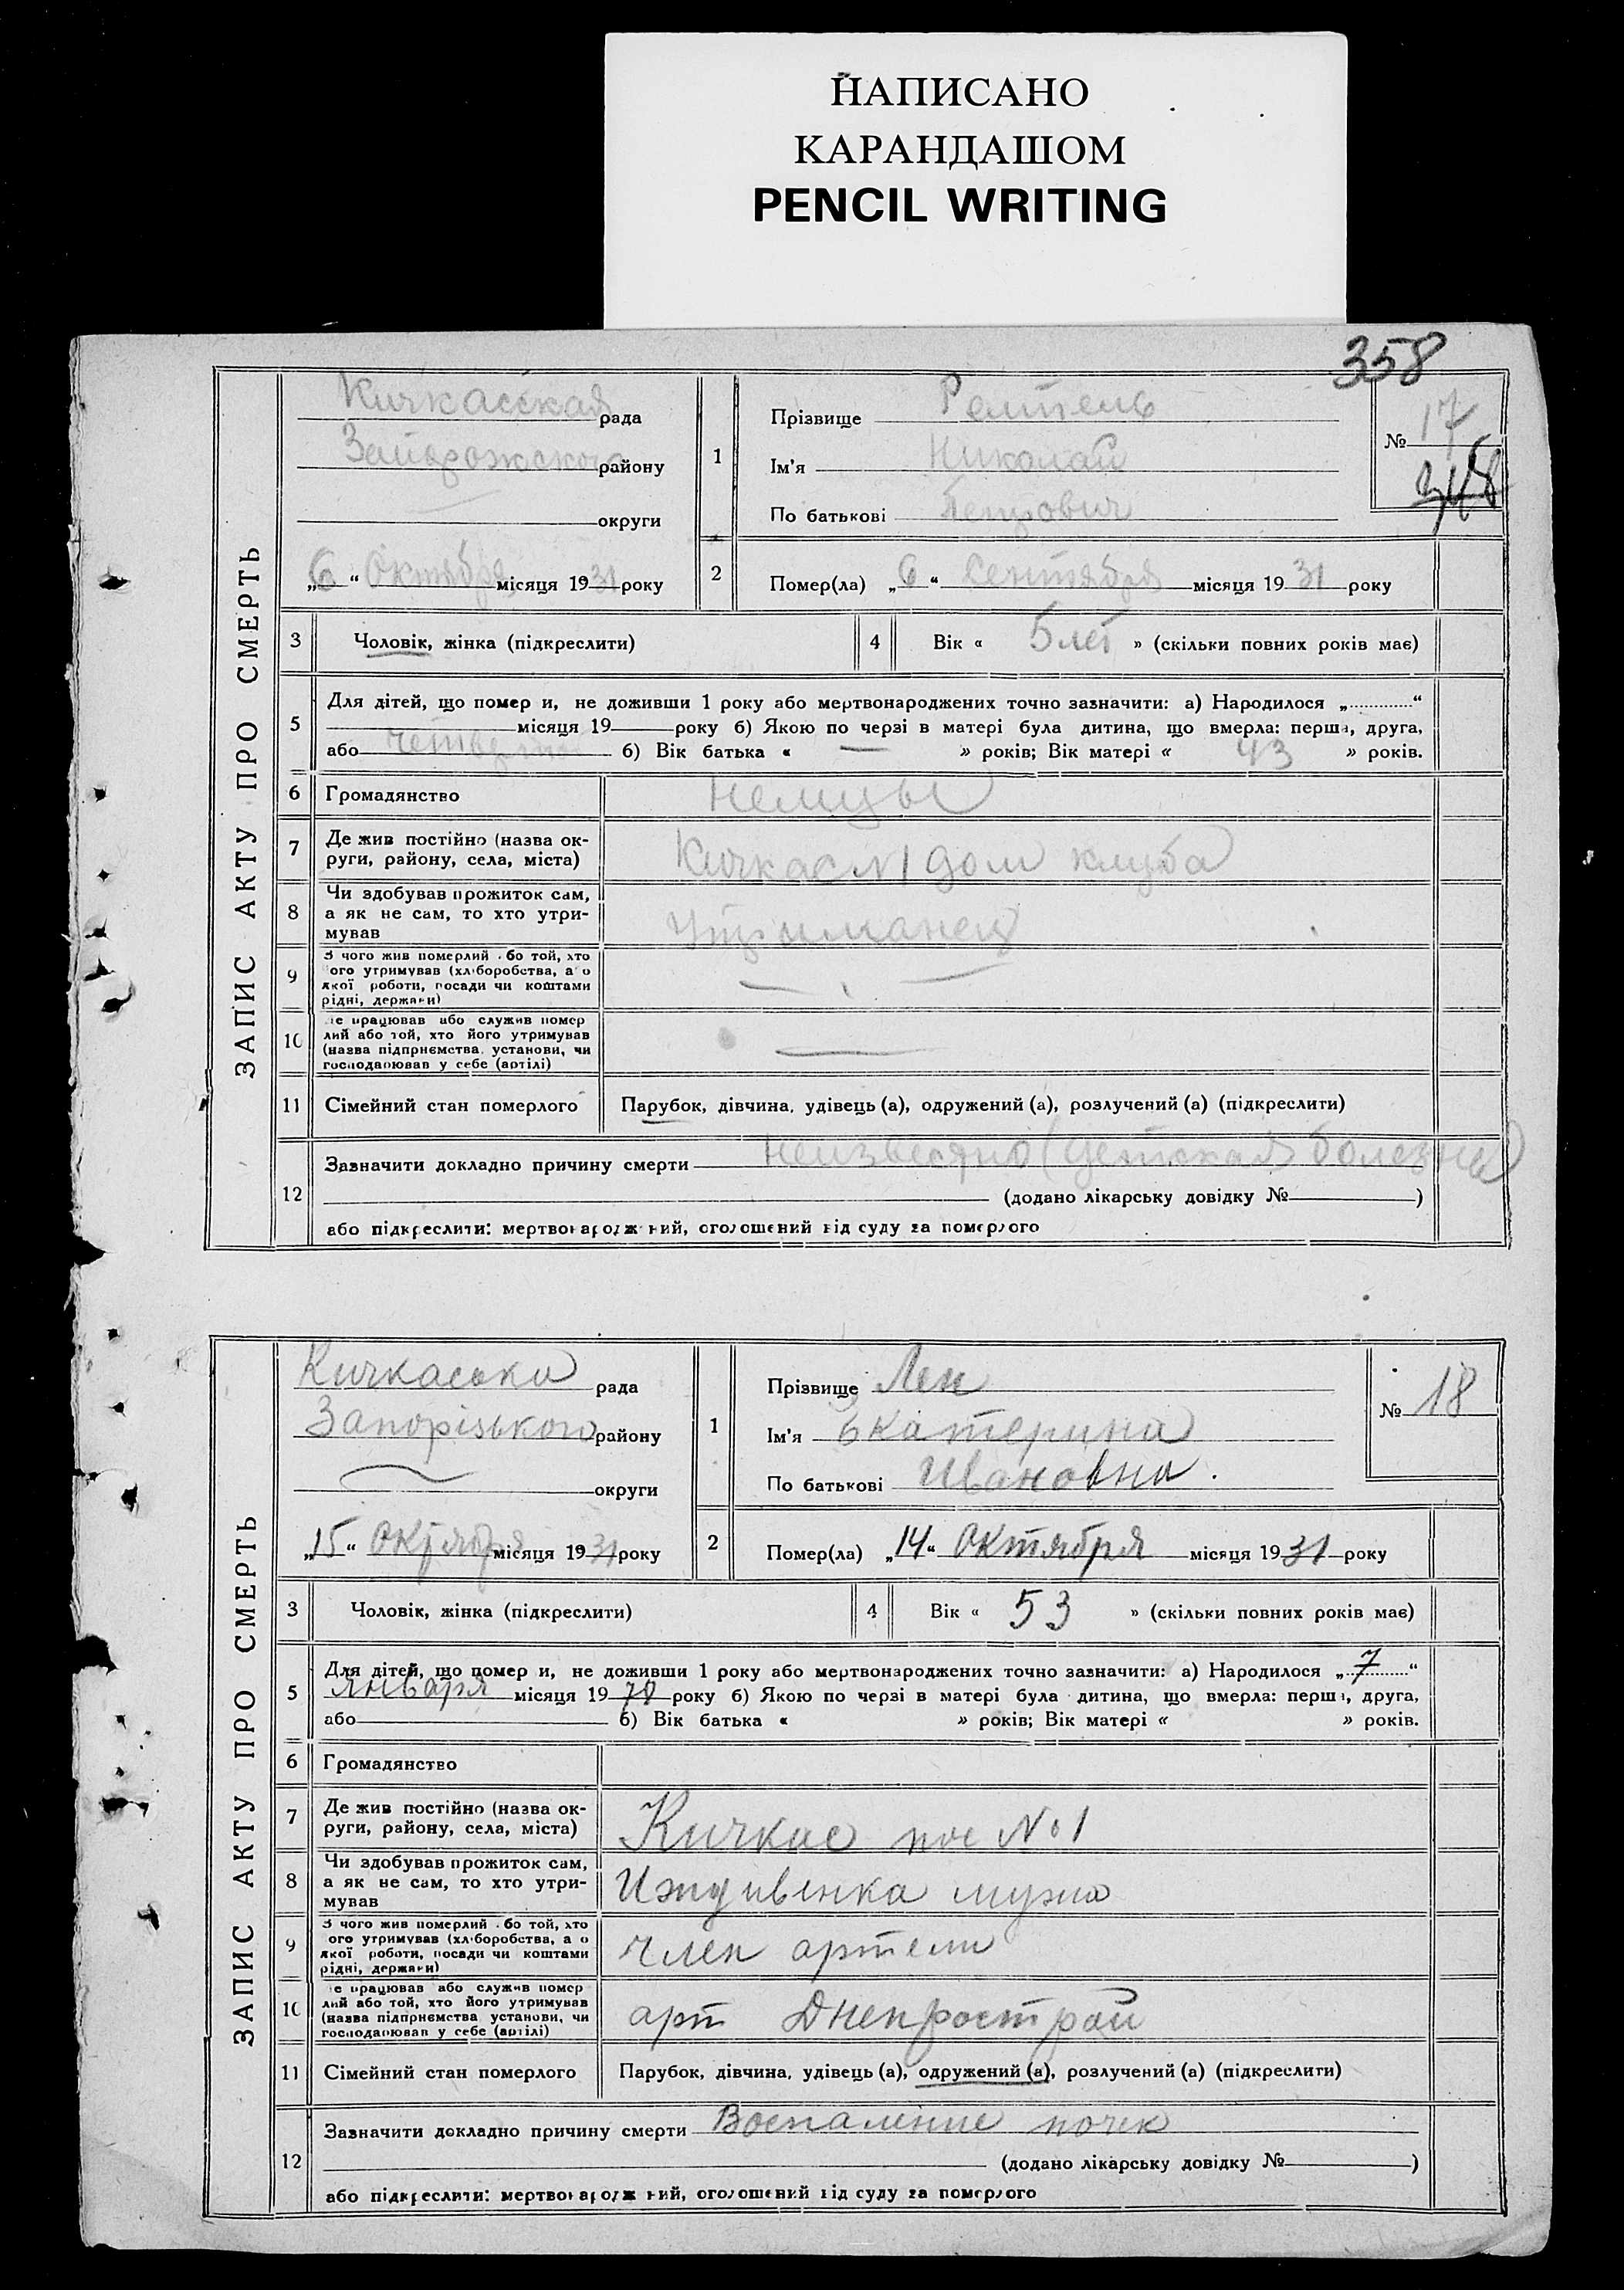 НАПИСАНО
КАРАНДАШОМ
PENCIL WRITING
358
ЗАПИС АКТУ ПРО СМЕРТЬ
Кичкасская рада
Запорожского району
округи
„6“ Октября місяця 1931 року
1
Прізвище
Ім'я Николай
По батькові Петрович
№ 17
2
Помер(ла) „6“ Сентября місяця 1931 року
3 Чоловік, жінка (підкреслити)
4 Вік « 5 лет » (скільки повних років має)
5 Для дітей, що помер и, не доживши 1 року або мертвонароджених точно зазначити: а) Народилося „ “
місяця 19 року б) Якою по черзі в матері була дитина, що вмерла: перша, друга,
або б) Вік батька « — » років; Вік матері « 43 » років.
6 Громадянство немцы
7 Де жив постійно (назва ок-
руги, району, села, міста) Кичкас №1 дом клуба
8 Чи здобував прожиток сам,
а як не сам, то хто утри-
мував Утриманец
9 З чого жив померлий або той, хто
його утримував (хліборобства, або
якої роботи, посади чи коштами
рідні, держави) —
10 Де працював або служив помер
лий або той, хто його утримував
(назва підприємства, установи, чи
господарював у себе (артілі) —
11 Сімейний стан померлого Парубок, дівчина, удівець (а), одружений (а), розлучений (а) (підкреслити)
12 Зазначити докладно причину смерти неизвестно (детская болезнь)
(додано лікарську довідку № )
або підкреслити: мертвонароджений, оголошений від суду за померлого
ЗАПИС АКТУ ПРО СМЕРТЬ
Кичкаська рада
Запорізького району
округи
„15“ Октября місяця 1931 року
1
Прізвище Лен
Ім'я Екатерина
По батькові Ивановна.
№ 18
2
Помер(ла) „14“ Октября місяця 1931 року
3 Чоловік, жінка (підкреслити)
4 Вік « 53 » (скільки повних років має)
5 Для дітей, що помер и, не доживши 1 року або мертвонароджених точно зазначити: а) Народилося „7“
Января місяця 19 78 року б) Якою по черзі в матері була дитина, що вмерла: перша, друга,
або б) Вік батька « » років; Вік матері « » років.
6 Громадянство
7 Де жив постійно (назва ок-
руги, району, села, міста) Кичкас пос №1
8 Чи здобував прожиток сам,
а як не сам, то хто утри-
мував Иждивенка мужа
9 З чого жив померлий або той, хто
його утримував (хліборобства, або
якої роботи, посади чи коштами
рідні, держави) член артели
10 Де працював або служив помер
лий або той, хто його утримував
(назва підприємства, установи, чи
господарював у себе (артілі) арт Днепрострой
11 Сімейний стан померлого Парубок, дівчина, удівець (а), одружений (а), розлучений (а) (підкреслити)
12 Зазначити докладно причину смерти Воспаление почек
(додано лікарську довідку № )
або підкреслити: мертвонароджений, оголошений від суду за померлого